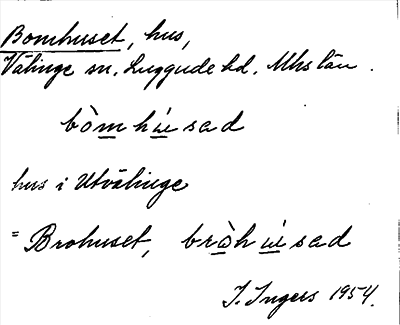 Bomhuset, hus,
Välinge sn. Luggude hd. Mhs län.
bòmhu̇sad
hus i Utvälinge
= Brohuset, bròhu̇sad
I. Ingers 1954.